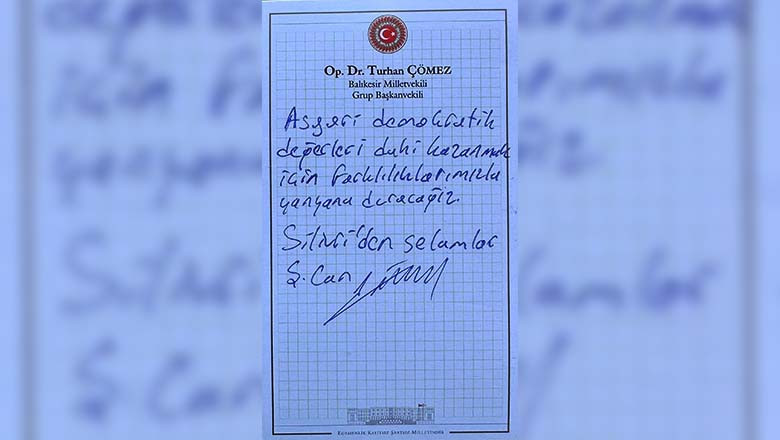 Op. Dr. Turhan ÇÖMEZ
Balıkesir Milletvekili
Grup Başkanvekili
Asgari demokratik
değerleri dahi kazanmak
için farklılıklarımızla
yanyana duracağız.
Silivri'den selamlar
Ş. Can
EGEMENLİK KAYITSIZ ŞARTSIZ MİLLETİNDİR